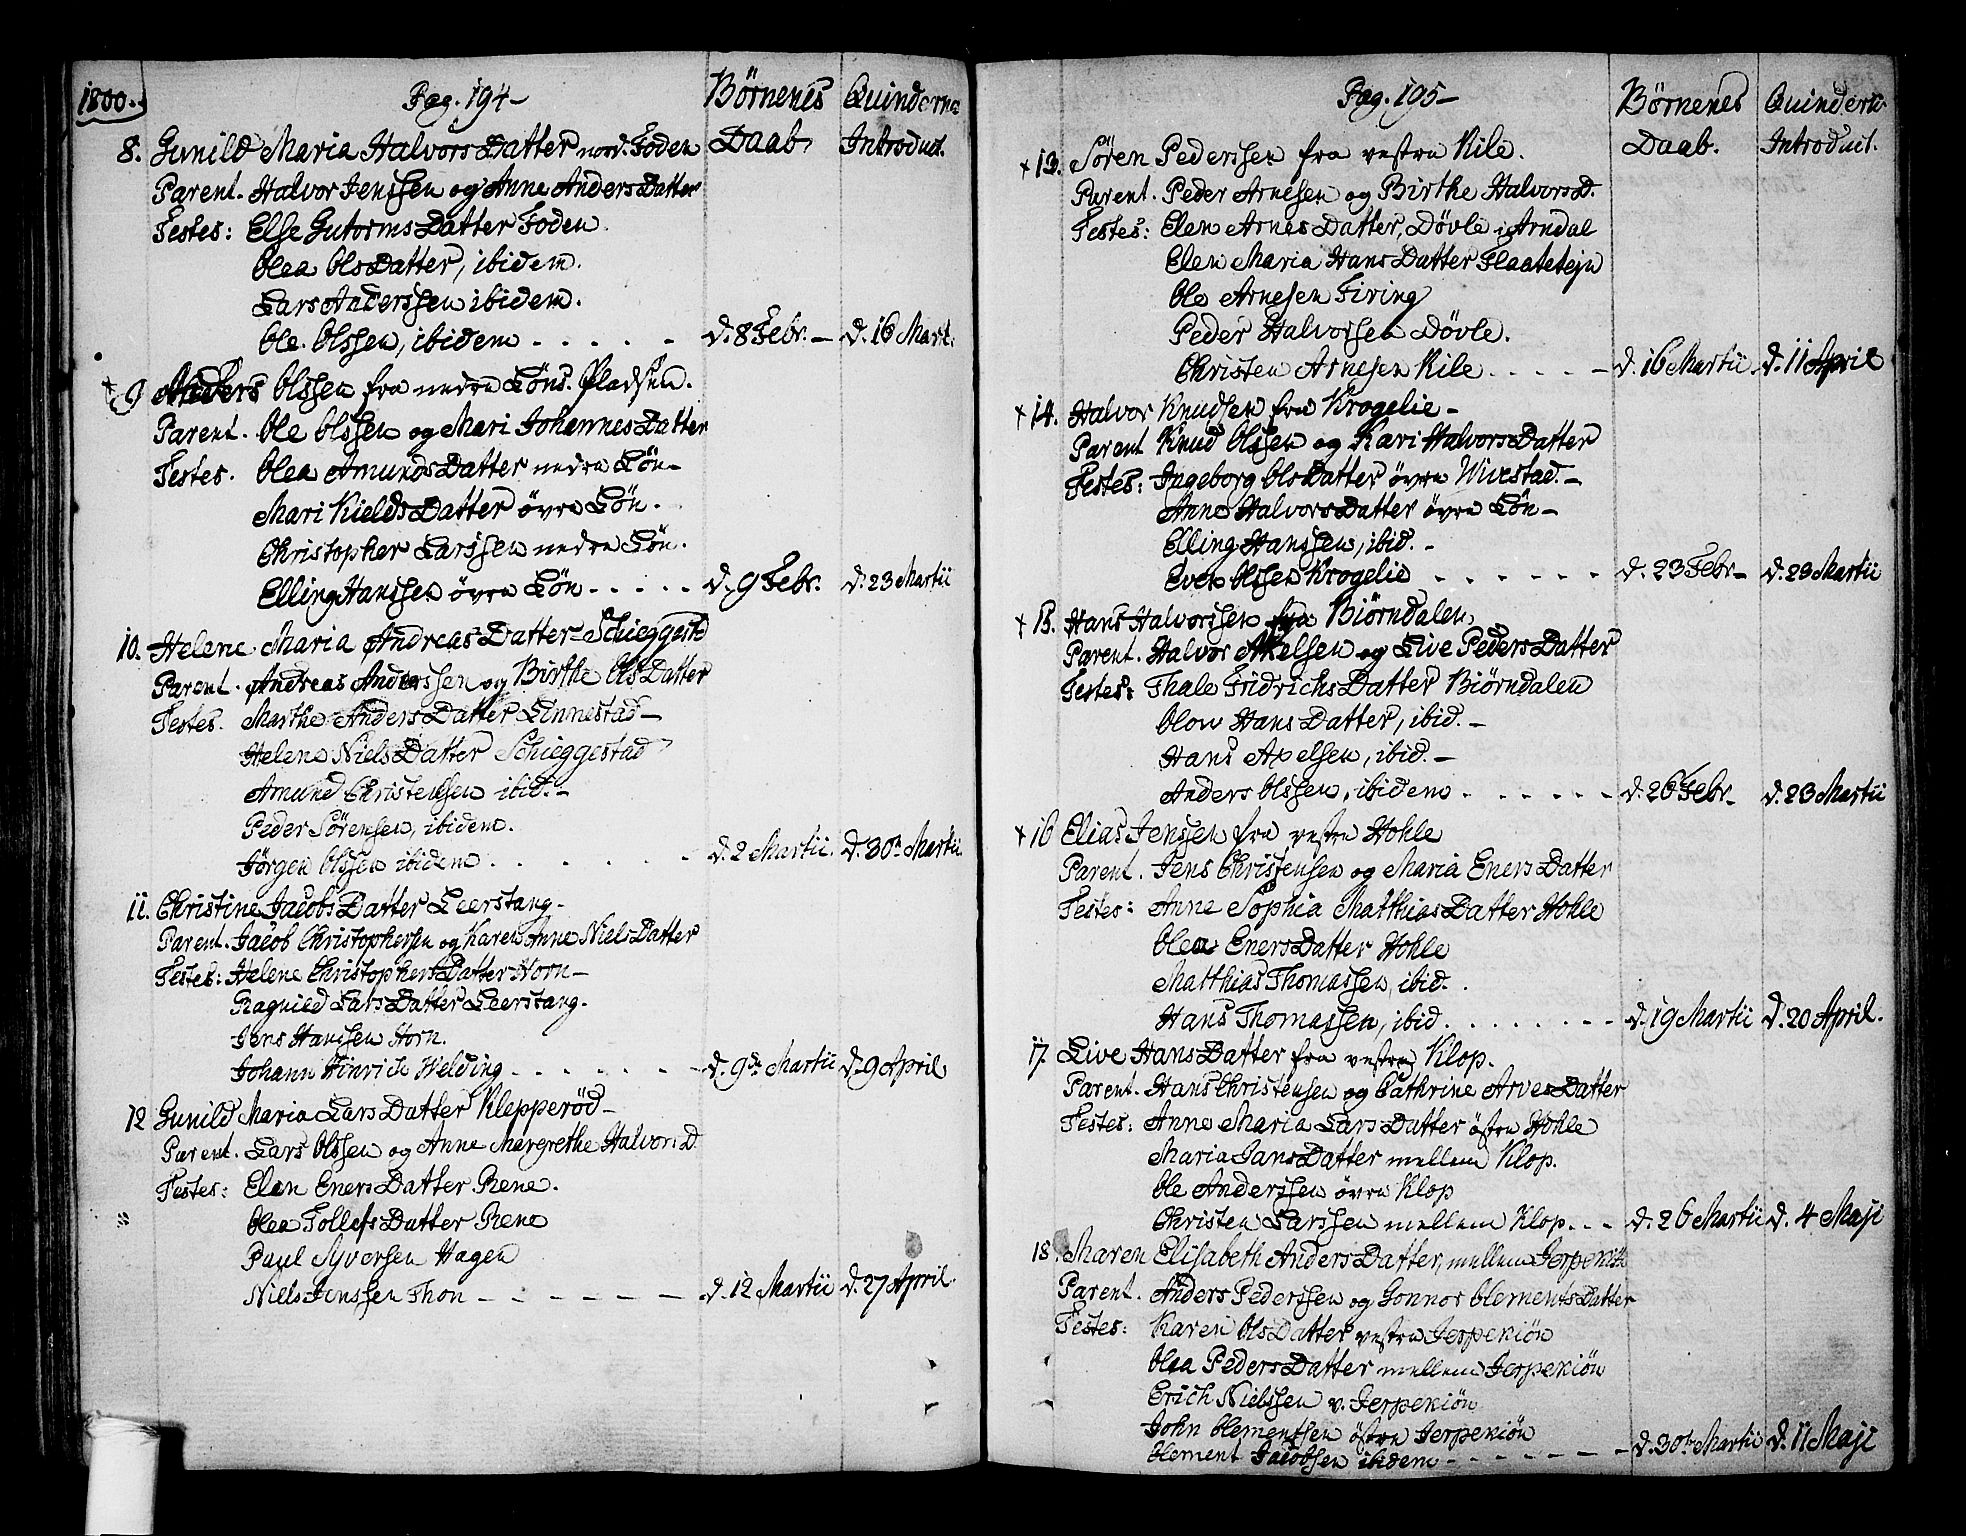 1800.
Pag. 194 -
Börnenes Daab,
Quinderne Introduct.
8. Gunild Maria Halvors Datter nord. Foden
Parent. Halvor Jenssen og Anne Anders Datter
Testes: Else Gutorms Datter Foden.
Olea Ols Datter, ibidem.
Lars Anderssen ibidem.
Ole Olssen, ibidem . . . . . d. 8 Febr. - d. 16 Mart.
+ 9 Anders Olssen fra nedre Löns. Pladsen.
Parent. Ole Olssen og Mari Johannes Datter
Testes. Olea Amunds Datter nedre Lön -
Mari Kields Datter övre Lön.
Christopher Larssen nedre Lön.
Elling Hanssen övre Lön . . . . . d. 9 Febr. d. 23 Martii
10. Helene Maria Andreas Datter - Schieggestd
Parent. Andreas Anderssen og Birthe Ols Datter
Testes. Marthe Anders Datter Linnestad -
Helene Niels Datter Schieggestad
Amund Christensen ibid. -
Peder Sörensen, ibidem.
Jörgen Olssen ibidem . . . . . . d. 2 Martii. d. 30 Martii.
11. Christine Jacobs Datter Leerstang.
Parent. Jacob Christophersen og Karen Anne Niels Datter
Testes: Helene Christophers Datter Horn -
Ragnild Lars Datter Leerstang.
Jens Hanssen Horn.
Johann Hinrich Welding . . . . . . d. 9de Martii d. 9 April
12 Gunild Maria Lars Datter Klopperöd -
Parent. Lars Olssen og Anne Margrethe Halvors D
Testes: Elen Eners Datter Rene.
Olea Tollefs Datter Rene
Paul Syversen Hagen
Niels Jenssen Thon - - - - - - d. 12 Martii d. 27 April.
Pag. 195 -
Börnenes Daab.
Quindern Introduct.
+ 13. Sören Pederssen fra vestre Kile.
Parent. Peder Arnesen og Birthe Halvors D.
Testes: Elen Arnes Datter, Dövle i Arndal
Elen Maria Hans Datter Flaatetejn
Ole Arnesen Firing
Peder Halvorssen Dövle.
Christen Arnesen Kile . . . . . d. 16 Martii d. 11 April
+ 14. Halvor Knudsen fra Krogelie -
Parent Knud Olssen og Kari Halvors Datter
Testes: Ingeborg Ols Datter övre Wivestad. -
Anne Halvors Datter övre Lön -
Elling Hanssen, ibid. -
Even Olssen Krogelie . . . . . . d. 23 Febr - d. 23 Martii
+ 15. Hans Halvorssen fra Biörndalen,
Parent. Halvor Axelsen og Live Peders Datter
Testes: Thale Fridrichs Datter Biörndalen
Olow Hans Datter, ibid. -
Hans Axelsen, ibid. -
Anders Olssen, ibidem . . . . . . d. 26 Febr. d. 23 Martii
+ 16 Elias Jenssen fra vestre Hohle
Parent. Jens Christensen og Maria Eners Datter
Testes: Anne Sophia Matthias Datter Hohle
Olea Eners Datter Hohle
Matthias Thomassen, ibid. .
Hans Thomassen, ibid. . . . . . . d. 19 Martii d. 20 April.
17. Live Hans Datter fra vestre Klop.
Parent. Hans Christensen og Cathrine Arves Datter
Testes: Anne Maria Lars Datter östre Hohle
Maria Jans Datter mellem Klop.
Ole Anderssen övre Klop
Christen Larssen mellem Klop. . . d. 26 Martii d. 4 Maji
18. Maren Elisabeth Anders Datter, mellem Jerpeki
Parent. Anders Pederssen og Gonnor Clements Datter
Testes: Karen Ols Datter vestre Jerpekiön
Olea Peders Datter mellem Jerpekiön
Erich Nielssen v. Jerpekiön
John Clementsen östre Jerpekiön
Clement Jacobsen ibidem - - - - - d. 30te Martii d. 11 Maji